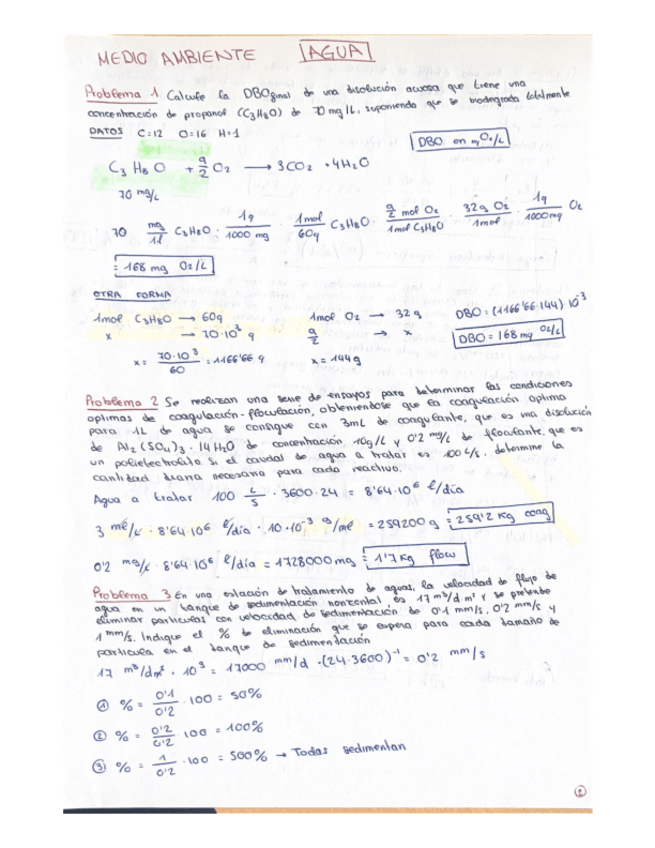 MEDIO AMBIENTE AGUA
Problema 1 Calcule la DBO final de una disolución acuosa que tiene una
concentración de propanol (C3H8O) de 70 mg/L, suponiendo que se biodegrada totalmente
DATOS C=12 O=16 H=1
DBO en mg O2/L
C3 H8 O + 9/2 O2 → 3CO2 + 4H2O
70 mg/L
70 mg/1l C3H8O · 1g/1000 mg · 1mol/60g C3H8O · 9/2 mol O2/1mol C3H8O · 32g O2/1mol · 1g/1000mg O2
= 168 mg O2/L
OTRA FORMA
1mol C3H8O → 60g 1mol O2 → 32g DBO = (1166'66·144) 10^-3
x → 70·10^3 g 9/2 → x DBO = 168 mg O2/L
x = 70·10^3/60 = 1166'66 g x = 144g
Problema 2 Se realizan una serie de ensayos para determinar las condiciones
optimas de coagulación-floculación, obteniendose que la coagulación optima
para 1L de agua se consigue con 3mL de coagulante, que es una disolución
de Al2(SO4)3 · 14H2O de concentración 10g/L y 0'2 mg/L de floculante, que es
un polielectrolito. Si el caudal de agua a tratar es 100 L/s, determine la
cantidad diaria necesaria para cada reactivo.
Agua a tratar 100 L/s · 3600·24 = 8'64·10^6 l/día
3 ml/L · 8'64·10^6 l/día · 10·10^-3 g/ml = 259200 g = 259'2 Kg coag
0'2 mg/L · 8'64·10^6 l/día = 1728000 mg = 1'7 Kg flocu
Problema 3 En una estación de tratamiento de aguas, la velocidad de flujo de
agua en un tanque de sedimentación horizontal es 17 m³/d m² y se pretende
eliminar particulas con velocidad de sedimentación de 0'1 mm/s, 0'2 mm/s y
1 mm/s. Indique el % de eliminación que se espera para cada tamaño de
particula en el tanque de sedimentación
17 m³/dm² · 10^3 = 17000 mm/d · (24·3600)^-1 = 0'2 mm/s
① % = 0'1/0'2 · 100 = 50%
② % = 0'2/0'2 · 100 = 100%
③ % = 1/0'2 · 100 = 500% → Todas sedimentan